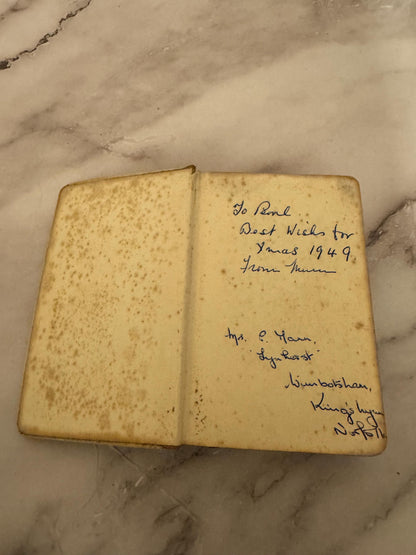 To
Best Wishes for
Xmas 1949
From Mum
Mrs.
Lyndhurst
Wimbotsham,
King's Lynn
Norfolk